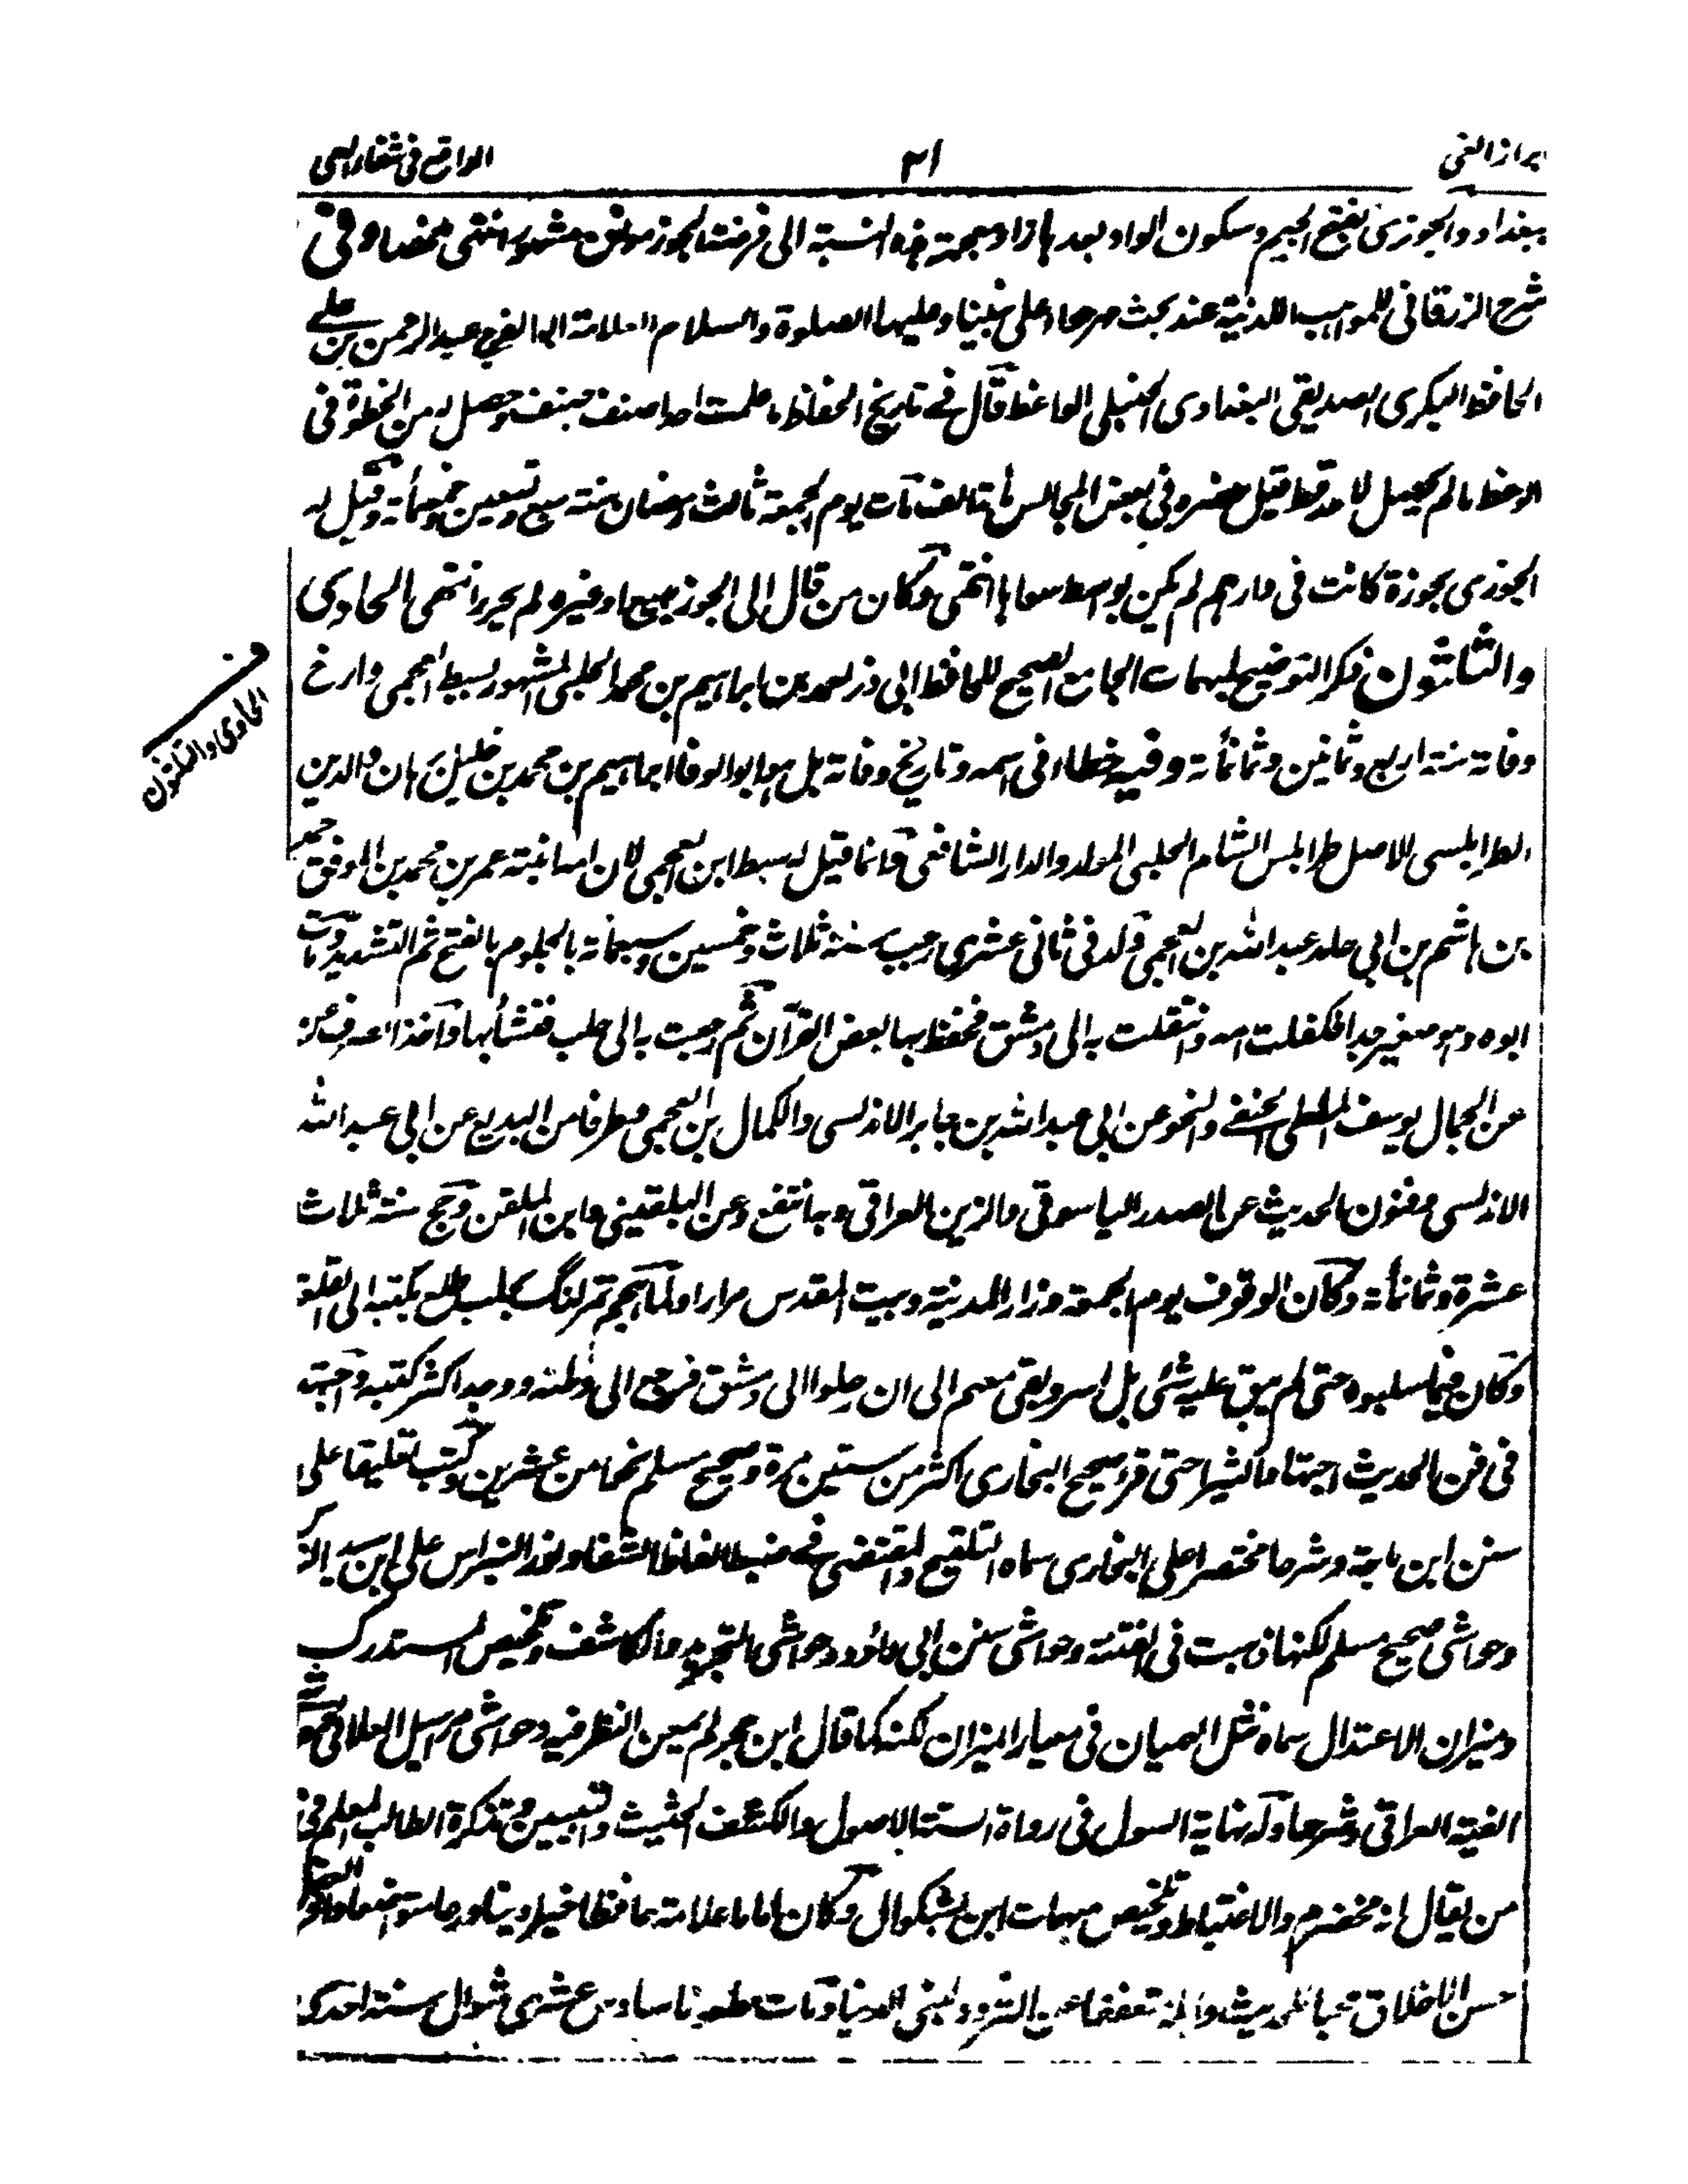 ابراز الغي
٢١
الواقع في شفاء العي
ببغداد والجوزى بفتح الجيم وسكون الواو بعدها زاء معجمة هذه النسبة الى فرضة الجوز موضع مشهور انتهى ملخصا وفى
شرح الزرقانى للمواهب اللدنية عند بحث على نبينا وعليها الصلوة والسلام العلامة ابو الفرج عبد الرحمن بن على
الحافظ البكرى الصديقى البغدادى الحنبلى الواعظ قال فى تاريخ الحفاظ ما علمت احدا صنف ما صنف وحصل له من الحظوة فى
الوعظ ما لم يحصل لاحد قط قيل حضره فى بعض المجالس مائة الف مات يوم الجمعة ثالث رمضان سنة سبع وتسعين وخمسمأية وقيل له
الجوزى بجوزة كانت فى دارهم لم يكن بواسط سواها انتهى وكان من قال الى الجوز بيعها وغيره لم يحرر انتهى الحادى
والثلثون ذكر التوضيح لمبهمات الجامع الصحيح للحافظ ابى ذر احمد بن ابراهيم بن محمد الحلبى المشهور بسبط العجمى وارخ
وفاته سنة اربع وثمانين وثمانمأة وفيه خطاء فى اسمه وتاريخ وفاته بل هو ابو الوفا ابراهيم بن محمد بن خليل برهان الدين
الطرابلسى الاصل طرابلس الشام الحلبى المولد والدار الشافعى وانما قيل له سبط ابن العجمى لان امه ابنة عمر بن محمد بن الموفق احمد
بن هاشم بن ابى حامد عبد الله بن العجمى ولد فى ثانى عشرى رجب سنة ثلاث وخمسين وسبعمأة بالجلوم بالفتح ثم التشديد ومات
ابوه وهو صغير جدا فكفلته امه وانتقلت به الى دمشق فحفظ بها بعض القرآن ثم رجعت به الى حلب فنشأ بها واخذ الصرف
عن الجمال يوسف الملطى الحنفى والنحو عن ابى عبد الله بن جابر الاندلسى والكمال بن العجمى وطرفا من البديع عن ابى عبد الله
الاندلسى وفنون الحديث عن الصدر الياسوفى والزين العراقى وبه انتفع وعن البلقينى وابن الملقن وحج سنة ثلاث
عشرة وثمانمأة وكان الوقوف يوم الجمعة وزار المدينة وبيت المقدس مرارا ولما هجم تمرلنگ بحلب طلع بكتبه الى القلعة
وكان فيما سلبوه حتى لم يبق عليه شئ بل اسر وبقى معهم الى ان رحلوا الى دمشق فرجع الى وطنه ووجد اكثر كتبه واجتهد
فى فن الحديث اجتهادا كثيرا حتى قرء صحيح البخارى اكثر من ستين مرة وصحيح مسلم نحوا من عشرين وكتب تعليقا على
سنن ابن ماجة وشرحا مختصرا على البخارى سماه التلقيح والمقتفى فى ضبط الفاظ الشفا ونور النبراس على ابن سيد الناس
وحواشى صحيح مسلم لكنها ذهبت فى الفتنة وحواشى سنن ابى داؤد وحواشى التجريد والكاشف وتلخيص المستدرك
وميزان الاعتدال سماه نثل الهميان فى معيار الميزان لكنه كما قال ابن حجر لم يمعن النظر فيه وحواشى مراسيل العلائى
الفية العراقى وشرحها وله نهاية السول فى رواة الستة الاصول والكشف الحثيث والتبيين وتذكرة الطالب المعلم فى
من يقال انه مخضرم والاغتباط وتلخيص مبهمات ابن بشكوال وكان اماما علامة حافظا خيرا دينا ورعا متواضعا
حسن الاخلاق محبا للحديث واهله متعففا عن التردد لبنى الدنيا ومات مطعونا سادس عشرى شوال سنة احدى
الحادى والثلثون